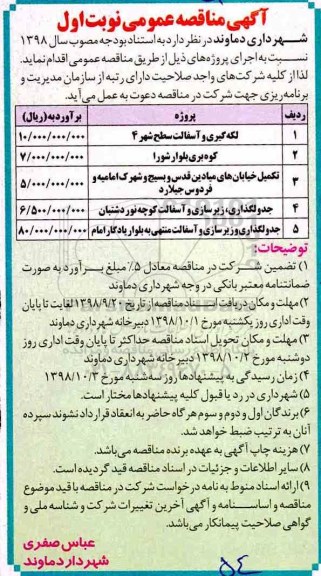 آگهی مناقصه عمومی نوبت اول
شهرداری دماوند در نظر دارد به استناد بودجه مصوب سال ۱۳۹۸
نسبت به اجرای پروژه‌های ذیل از طریق مناقصه عمومی اقدام نماید.
لذا از کلیه شرکت‌های واجد صلاحیت دارای رتبه از سازمان مدیریت و
برنامه‌ریزی جهت شرکت در مناقصه دعوت به عمل می‌آید.
ردیف پروژه برآورد به (ریال)
۱ لکه گیری و آسفالت سطح شهر ۴ ۱۰/۰۰۰/۰۰۰/۰۰۰
۲ کوه بری بلوار شورا ۷/۰۰۰/۰۰۰/۰۰۰
۳ تکمیل خیابان‌های میادین قدس و بسیج و شهرک امامیه و
فردوس جیلارد ۵/۰۰۰/۰۰۰/۰۰۰
۴ جدولگذاری، زیرسازی و آسفالت کوچه نور دشتبان ۶/۵۰۰/۰۰۰/۰۰۰
۵ جدولگذاری و زیرسازی و آسفالت منتهی به بلوار یادگار امام ۸۰/۰۰۰/۰۰۰/۰۰۰
توضیحات:
۱) تضمین شرکت در مناقصه معادل ۵٪ مبلغ برآورد به صورت
ضمانتنامه معتبر بانکی در وجه شهرداری دماوند
۲) مهلت و مکان دریافت اسناد مناقصه از تاریخ ۱۳۹۸/۹/۲۰ لغایت تا پایان
وقت اداری روز یکشنبه مورخ ۱۳۹۸/۱۰/۱ دبیرخانه شهرداری دماوند
۳) مهلت و مکان تحویل اسناد مناقصه حداکثر تا پایان وقت اداری روز
دوشنبه مورخ ۱۳۹۸/۱۰/۲ دبیر خانه شهرداری دماوند
۴) زمان رسیدگی به پیشنهادها روز سه‌شنبه مورخ ۱۳۹۸/۱۰/۳
۵) شهرداری در رد یا قبول کلیه پیشنهادها مختار است.
۶) برندگان اول و دوم و سوم هر گاه حاضر به انعقاد قرارداد نشوند سپرده
آنان به ترتیب ضبط خواهد شد.
۷) هزینه چاپ آگهی به عهده برنده مناقصه می‌باشد.
۸) سایر اطلاعات و جزئیات در اسناد مناقصه قید گردیده است.
۹) ارائه اسناد منوط به نامه درخواست شرکت در مناقصه با قید موضوع
مناقصه و اساسنامه و آگهی آخرین تغییرات شرکت و شناسه ملی و
گواهی صلاحیت پیمانکار می‌باشد.
عباس صفری
شهردار دماوند